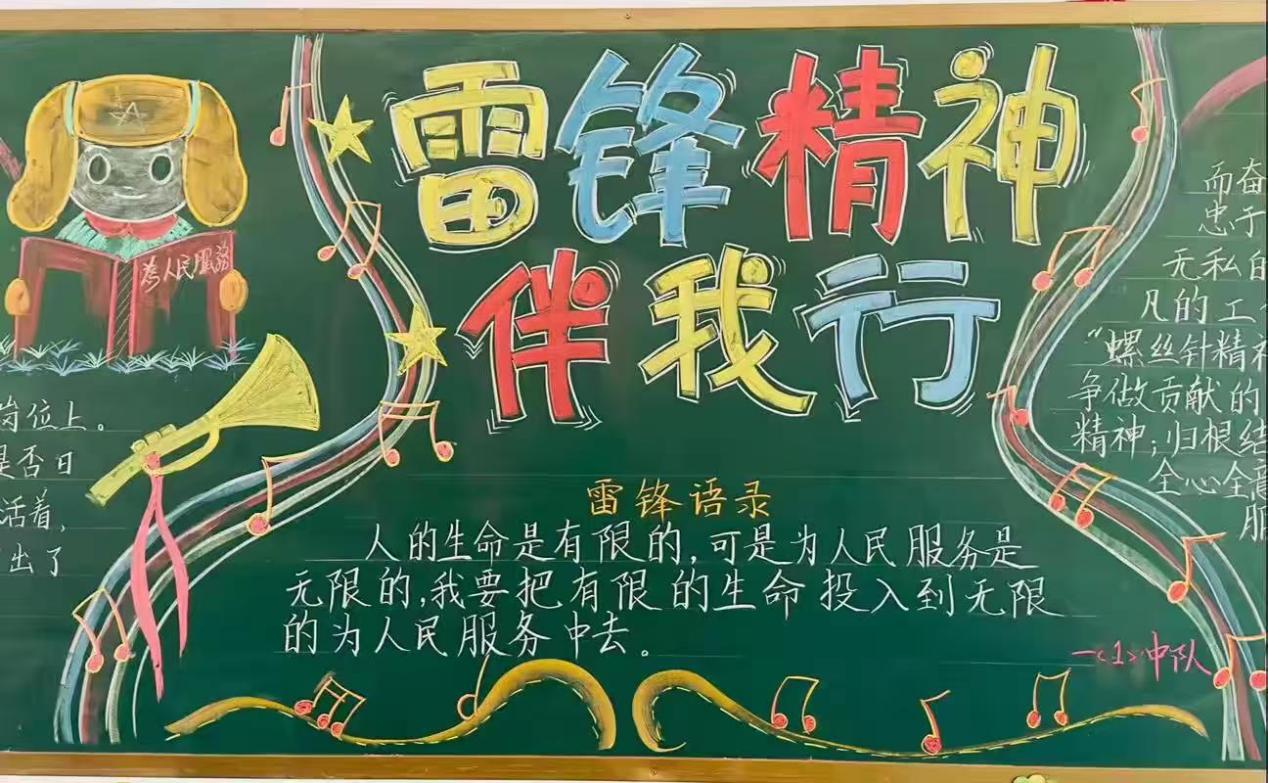 雷锋精神
伴我行
為人民服務
岗位上。
是否日
活着，
出了
雷锋语录
人的生命是有限的，可是为人民服务是
无限的，我要把有限的生命投入到无限
的为人民服务中去。
而奋
忠于
无私的
凡的工
“螺丝针精神
争做贡献的
精神；归根结
全心全意
服
一〈1〉中队